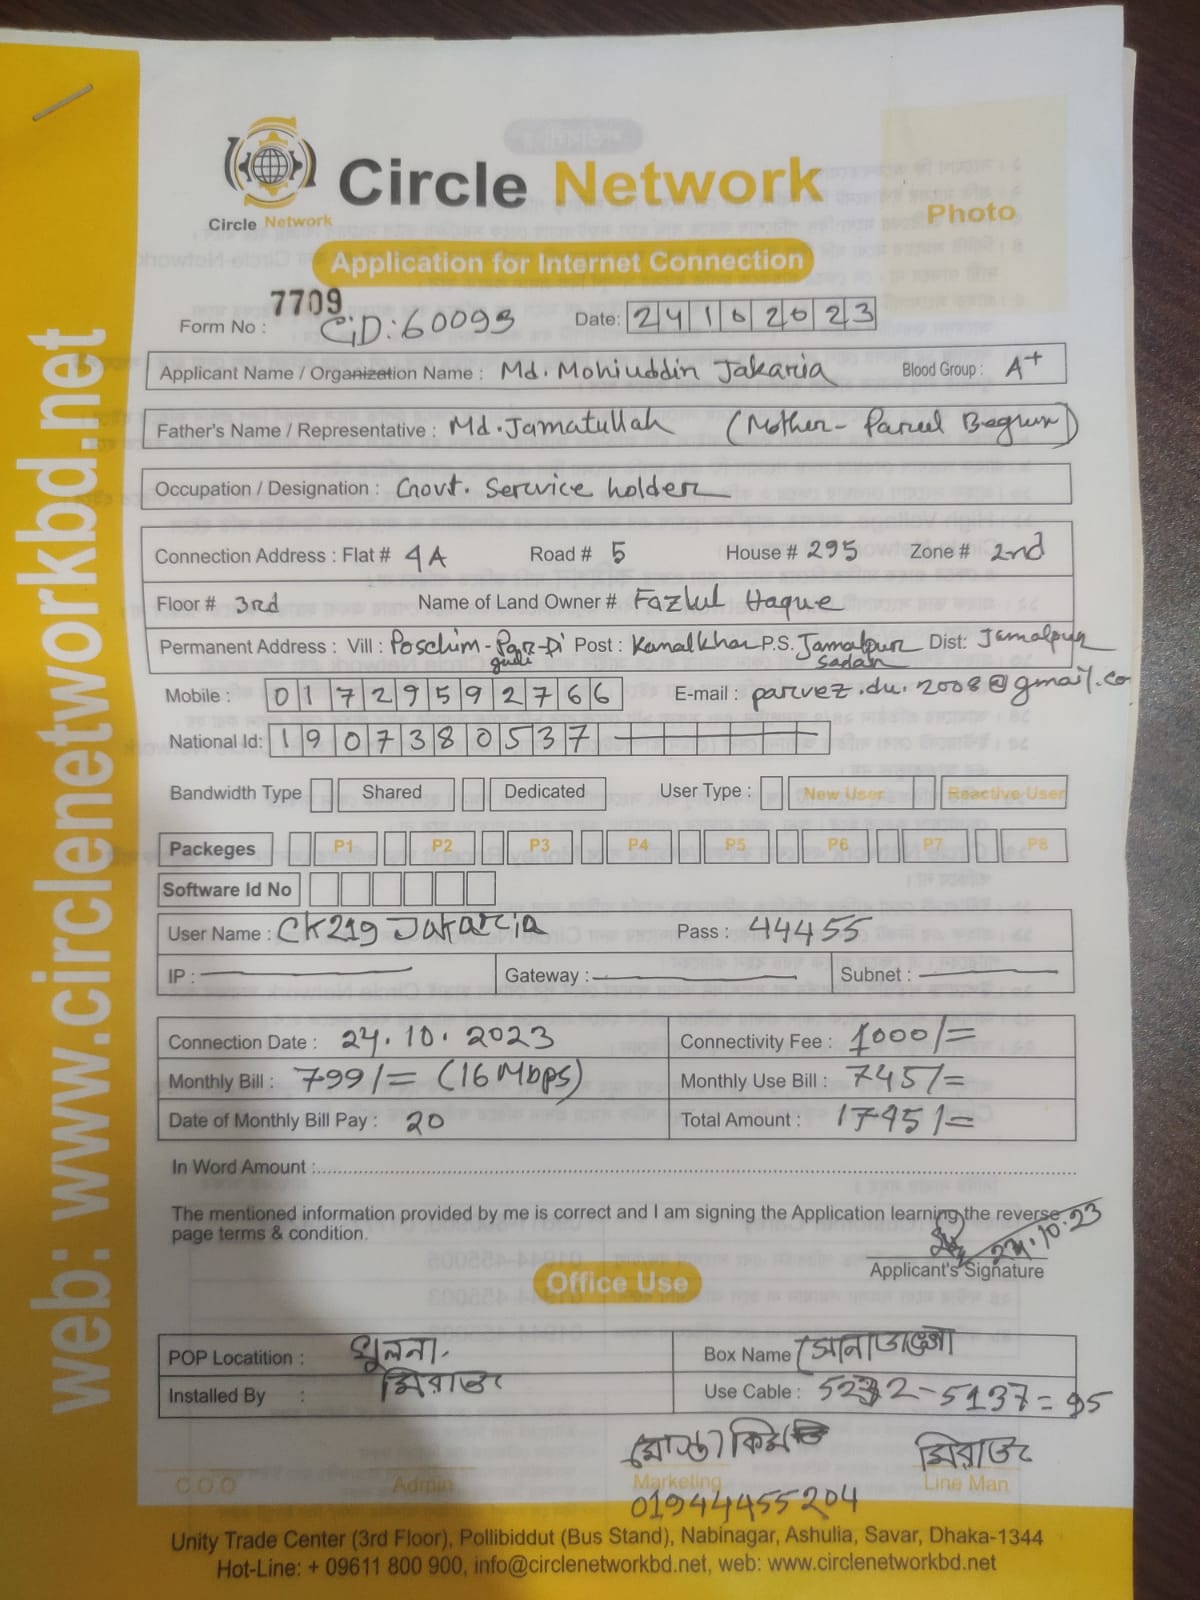 Circle Network
Circle Network
Photo
Application for Internet Connection
Form No : 7709 CiD: 60093 Date: 24102023
Applicant Name / Organization Name : Md. Mohiuddin Jakaria Blood Group : A+
Father's Name / Representative : Md. Jamatullah (Mother- Parul Begum)
Occupation / Designation : Govt. Service holder
Connection Address : Flat # 4A Road # 5 House # 295 Zone # 2nd
Floor # 3rd Name of Land Owner # Fazlul Haque
Permanent Address : Vill : Poschim - Par-Di Post : Kamalkha P.S. Jamalpur Dist: Jamalpur
gudi Sadar
Mobile : 01729592766 E-mail : parvez.du.2008@gmail.co
National Id: 1907380537
Bandwidth Type Shared Dedicated User Type : New User Reactive User
Packeges P1 P2 P3 P4 P5 P6 P7 P8
Software Id No
User Name : CK219 Jakaria Pass : 44455
IP : Gateway : Subnet :
Connection Date : 24.10.2023 Connectivity Fee : 1000/=
Monthly Bill : 799/= (16 Mbps) Monthly Use Bill : 745/=
Date of Monthly Bill Pay : 20 Total Amount : 1745/=
In Word Amount :
The mentioned information provided by me is correct and I am signing the Application learning the reverse
page terms & condition.
24.10.23
Applicant's Signature
Office Use
POP Locatition : খুলনা. Box Name সোনাডাঙ্গা
Installed By : মিরাজ Use Cable : 5232-5137=95
মিরাজ
C.O.O Admin Marketing Line Man
01944455204
Unity Trade Center (3rd Floor), Pollibiddut (Bus Stand), Nabinagar, Ashulia, Savar, Dhaka-1344
Hot-Line: + 09611 800 900, info@circlenetworkbd.net, web: www.circlenetworkbd.net
web: www.circlenetworkbd.net